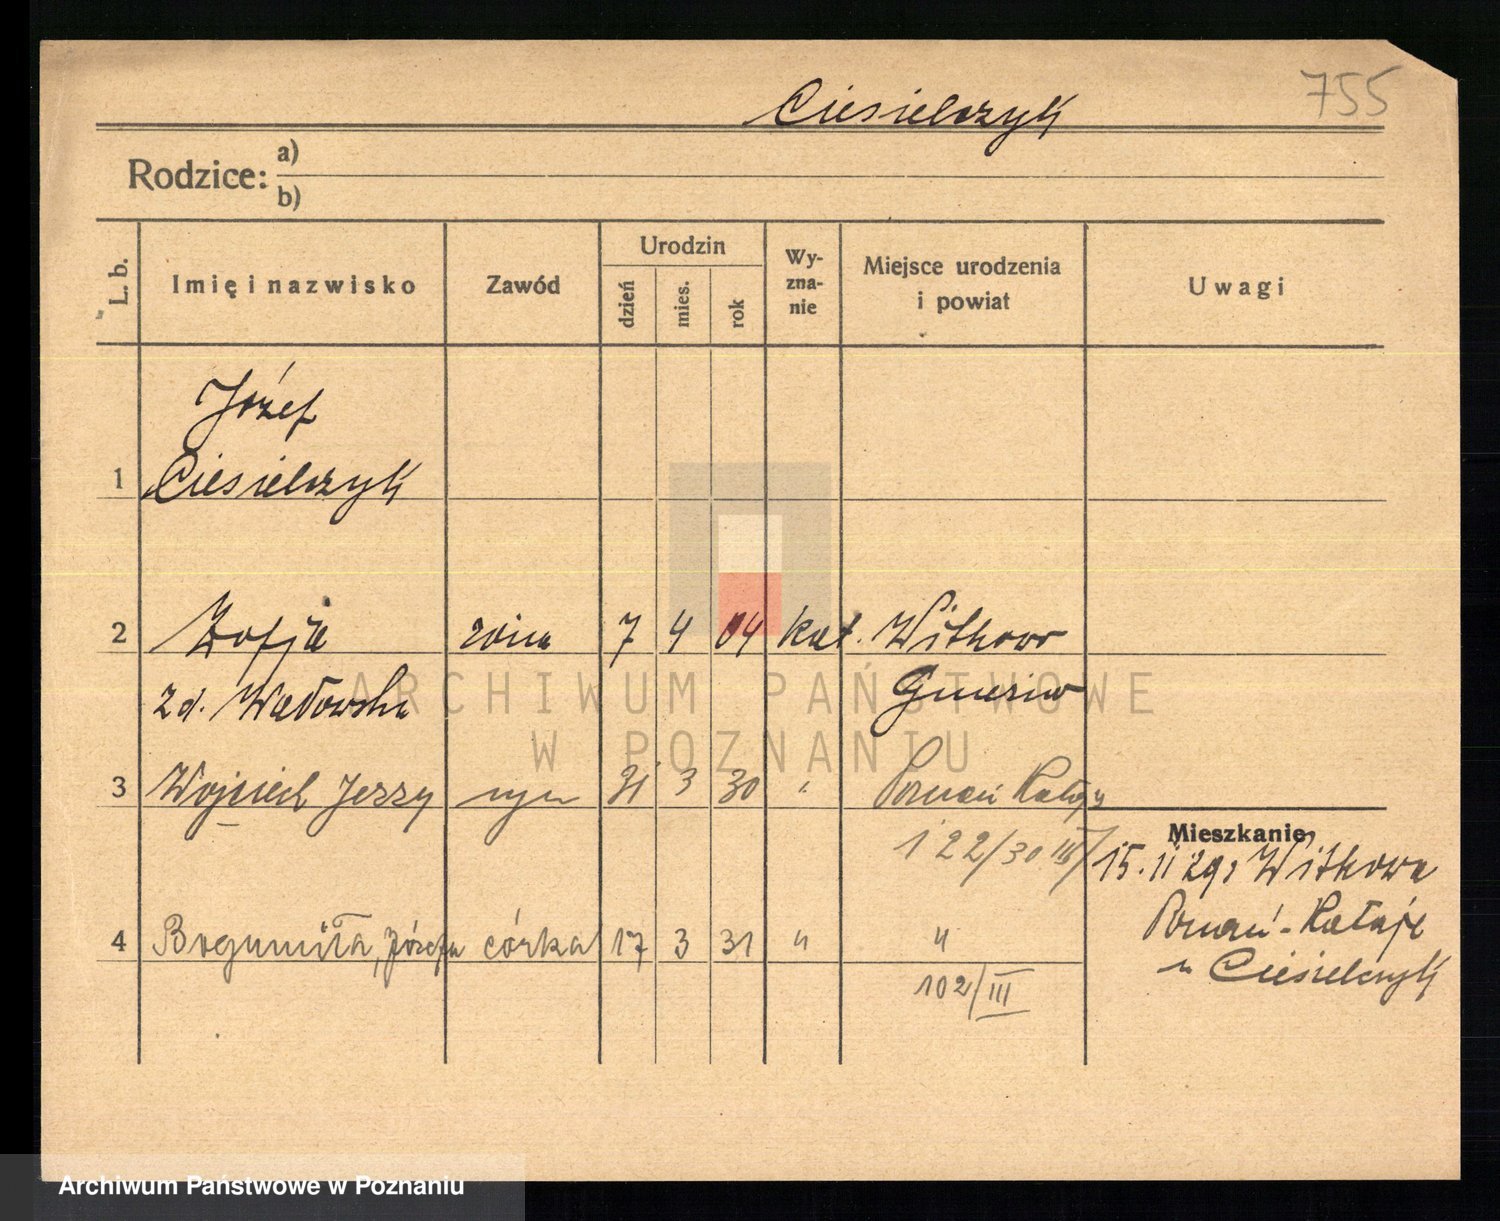 755
Ciesielczyk
Rodzice: a)
b)
L. b. Imię i nazwisko Zawód Urodzin dzień mies. rok Wy-zna-nie Miejsce urodzenia i powiat Uwagi
Józef
1 Ciesielczyk
2 Zofja żona 7 4 04 kat. Witkowo
zd. Wadowska Gniezno
3 Wojciech Jerzy syn 31 3 30 " Poznań Rataje
122/30 III
Mieszkanie
15. II 29 z Witkowa
Poznań-Rataje
4 Bogumiła, Józefa córka 17 3 31 " "
u Ciesielczyk
102/III
ARCHIWUM PAŃSTWOWE
W POZNANIU
Archiwum Państwowe w Poznaniu